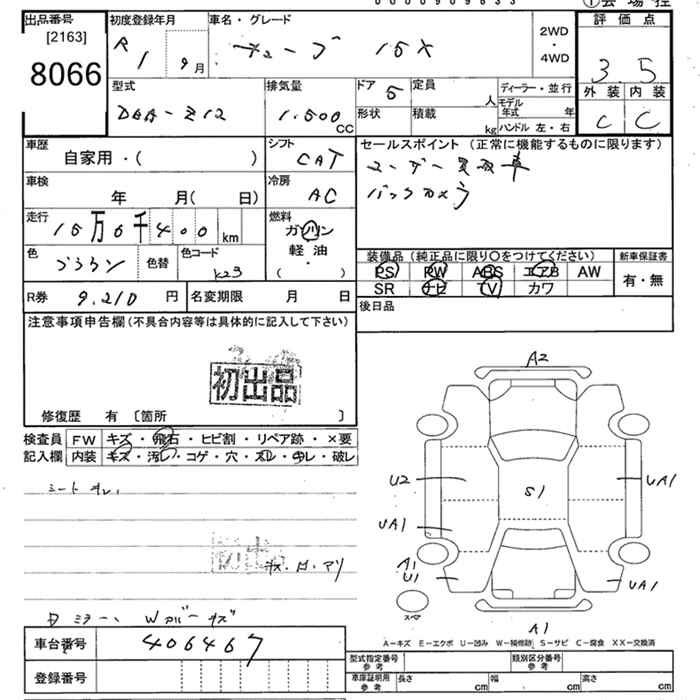 0000909633
①会場控
出品番号
[2163]
8066
初度登録年月
R 1 9月
車名・グレード
キューブ 15X
2WD
・
4WD
評価点
3.5
型式
DBA-Z12
排気量
1.500 CC
ドア 5
定員 人
形状
積載 kg
ディーラー・並行
モデル年式 年
ハンドル 左・右
外装 内装
C C
車歴
自家用・( )
シフト
CAT
セールスポイント (正常に機能するものに限ります)
ユーザー買取車
バックカメラ
車検
年 月( 日)
冷房
AC
走行
10万6千400km
燃料
ガソリン
軽油
・
( )
色
ブラウン
色替
色コード
K23
装備品 (純正品に限り○をつけてください)
PS PW ABS エアB AW
SR ナビ TV カワ
新車保証書
有・無
R券 9.210円
名変期限 月 日
後日品
注意事項申告欄 (不具合内容等は具体的に記入して下さい)
初出品
修復歴 有 〔箇所 〕
検査員
記入欄
FW キズ・飛石・ヒビ割・リペア跡・×要
内装 キズ・汚レ・コゲ・穴・スレ・キレ・破レ
シートスレ、
初出
キズ・凹・アリ
ミラー、Wカバーキズ
車台番号 406467
登録番号
A2
U2
S1
UA1
UA1
A1
U1
UA1
スペア
A1
A－キズ E－エクボ U－凹み W－補修跡 S－サビ C－腐食 XX－交換済
型式指定番号
参考
類別区分番号
参考
車庫証明用
参考
長さ cm
幅 cm
高さ cm